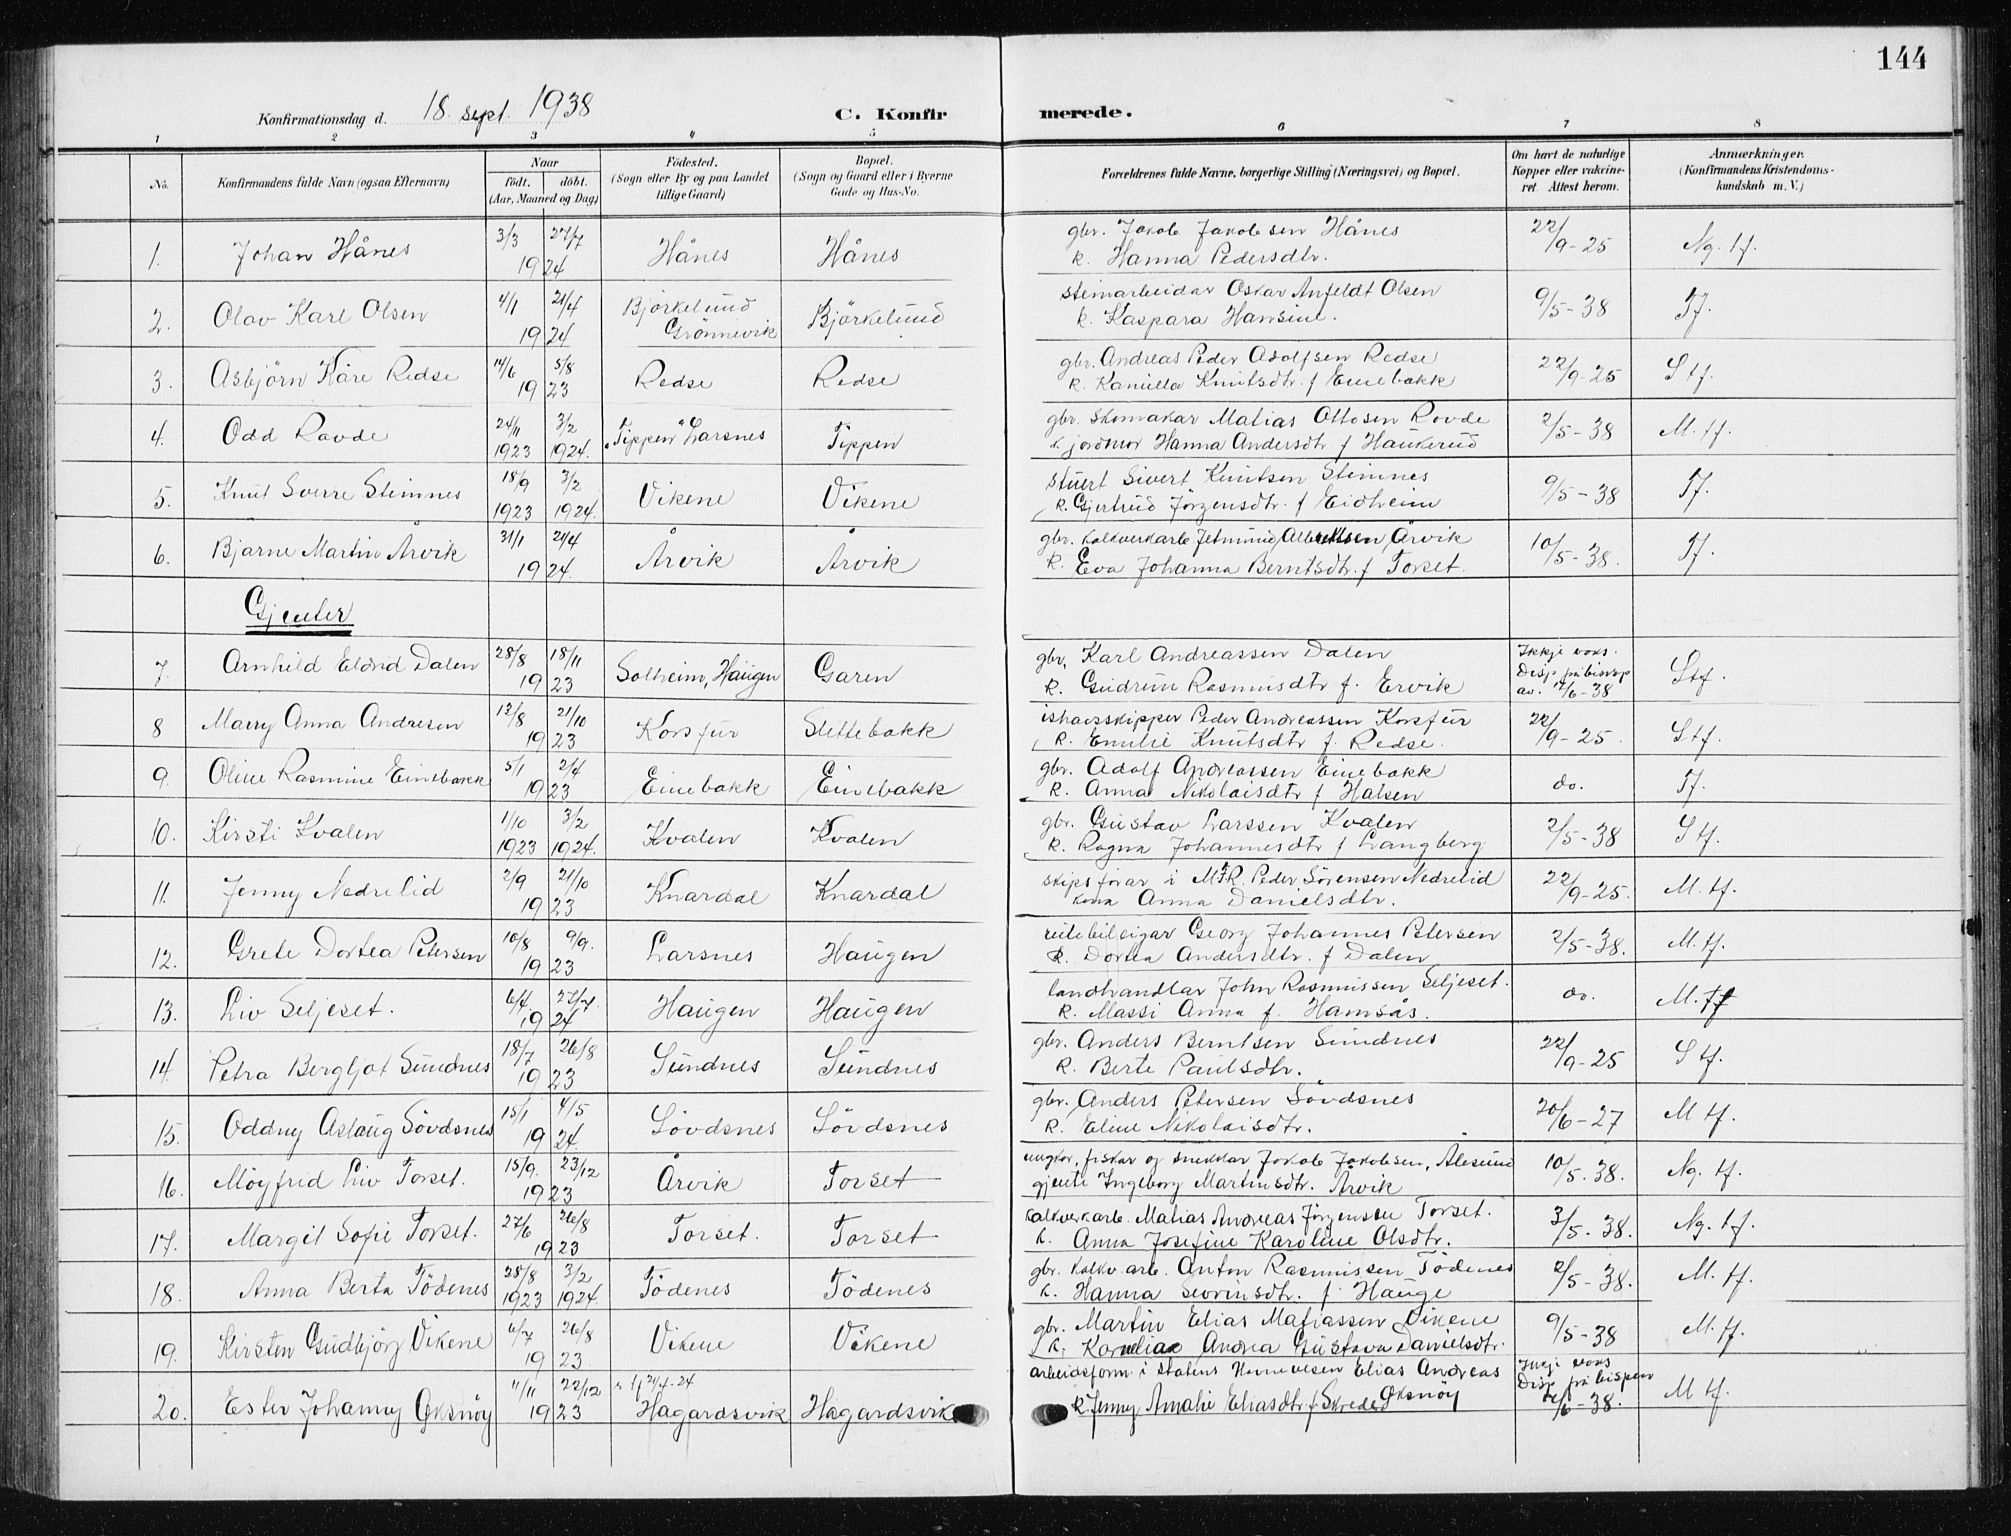 144
Konfirmationsdag d. 18. sept. 1938
C. Konfirmerede.
1 2 3 4 5 6 7 8
No. Konfirmandens fulde Navn (ogsaa Efternavn) Naar födt. döbt. (Aar, Maaned og Dag) Födested. (Sogn eller By og paa Landet tillige Gaard) Bopæl. (Sogn og Gaard eller i Byerne Gade og Hus-No. Forældrenes fulde Navne, borgerlige Stilling (Næringsvei) og Bopæl. Om havt de naturlige Kopper eller vakcineret. Attest herom. Anmærkninger. (Konfirmandens Kristendomskundskab m. V.)
1. Johan Hånes 3/3 27/7 1924 Hånes Hånes gbr. Jakob Jakobsen Hånes 22/9-25 Ng. tf.
k. Hanna Pedersdtr.
2. Olav Karl Olsen 4/1 21/4 1924 Björkelund Grönnevik Björkelund steinarbeidar Oskar Anfeldt Olsen 9/5-38 Tf.
k. Kaspara Hansine.
3. Asbjörn Kåre Redse 14/6 5/8 1923 Redse Redse gbr. Andreas Peder Adolfsen Redse 22/9-25 S tf.
k. Kamilla Knutsdtr. f Einebakk
4. Odd Rovde 24/11 1923 3/2 1924. "Tippen" Larsnes Tippen gbr. skomakar Matias Ottosen Rovde 2/5-38 M. tf.
k. jordmor Hanna Andersdtr. f Haukerud
5. Knut Sverre Steinnes 18/9 1923 3/2 1924. Vikene Vikene stuert Sivert Knutsen Steinnes 9/5-38 Tf.
k. Gjertrud Jörgensdtr. f Eidheim
6. Bjarne Martin Årvik 31/1 21/4 1924. Årvik Årvik gbr. kalkverkarb. Jetmund Albertsen Årvik 10/5-38. Tf.
k. Eva Johanna Berntsdtr. f Torset.
Gjenter
7. Arnhild Eldrid Dalen 28/8 18/11 1923 Solheim, Haugen Garen gbr. Karl Andreassen Dalen Ikkje voks. Disp. frå bisp av. 17/6-38 Stf.
k. Gudrun Rasmusdtr f. Ervik
8 Marry Anna Andresen 13/8 21/10 1923 Korsfur Slettebakk ishavsskipper Peder Andreassen Korsfur 22/9-25. Stf.
k. Emilie Knutsdtr f. Redse.
9. Oline Rasmine Einebakk 5/1 2/4 1923 Einebakk Einebakk gbr. Adolf Andreassen Einebakk do. Tf.
k. Anna Nikolaisdtr f Halsen
10. Kirsti Kvalen 1/10 1923 3/2 1924. Kvalen Kvalen gbr. Gustav Larssen Kvalen 2/5-38 S tf.
k. Ragna Johannesdtr f Langberg
11. Jenny Nedrelid 2/9 21/10 1923 Knardal Knardal skipsförar i M.F.R. Peder Sörensen Nedrelid 22/9-25. M. tf.
kona Anna Danielsdtr.
12. Grete Dortea Petersen 10/8 9/9. 1923 Larsnes Haugen rutebileigar Georg Johannes Petersen 2/5-38. M. tf.
k. Dorthea Andersdtr. f Dalen
13. Liv Seljeset. 6/4. 27/7. 1924 Haugen Haugen landhandlar John Rasmussen Seljeset. do. M. tf
k. Massi Anna f. Hamsås.
14. Petra Bergljot Sundnes 18/7 26/8 1923 Sundnes Sundnes gbr. Anders Berntsen Sundnes 22/9-25 S tf.
k. Berte Paulsdtr.
15. Oddny Aslaug Sövdsnes 15/1 4/5 1924 Sövdsnes Sövdsnes gbr. Anders Petersen Sövdsnes 20/6-27 M tf.
k. Eline Nikolaisdtr.
16. Möyfrid Liv Torset. 15/9. 23/12 1923 Årvik Torset ungkar, fiskar og snekkar Jakob Jakobsen, Ålesund 10/5-38. Ng. tf.
gjente Ingeborg Martinsdtr. Årvik
17. Margit Sofie Torset. 27/6 26/8 1923 Torset. Torset kalkverkarb. Matias Andreas Jörgensen Torset. 3/5-38. Ng. tf.
k. Anna Josefine Karoline Olsdtr.
18. Anna Berta Tödenes 28/8 1923 3/2 1924. Tödenes Tödenes gbr. kalkv arb. Anton Rasmussen Tödenes 2/5-38. M. tf.
k. Hanna Severinsdtr. f Hauge
19. Kirsten Gudbjörg Vikene 6/7 26/8 1923. Vikene Vikene gbr. Martin Elias Matiassen Vikene 9/5-38 M. tf.
k. Kornelia Andrea Gustava Danielsdtr.
20. Ester Johanny Øksnöy 11/11 22/12 1923 Hagardsvik Hagardsvik arbeidsform. i statens Havnevesen Elias Andreas Øksnöy Ikkje voks Disp. frå bispen 17/6-38. M tf.
k. Jenny Amalie Eliasdtr. f Skrede